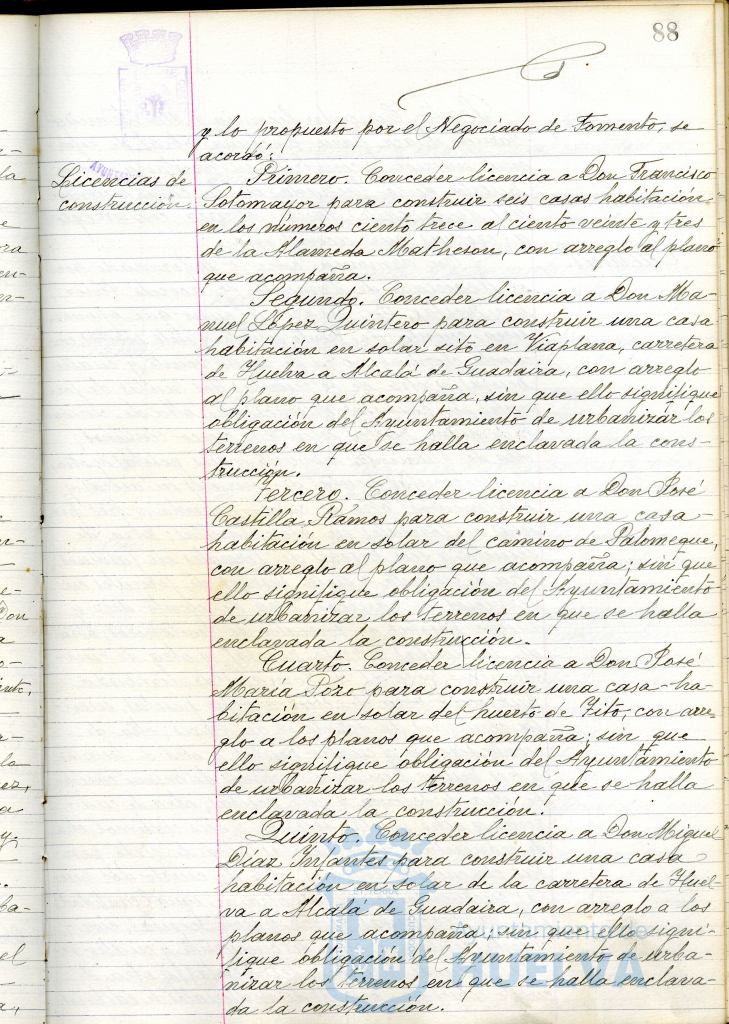 88
y lo propuesto por el Negociado de Fomento, se
acordó:
Licencias de
construcción.
Primero. Conceder licencia a Don Francisco
Sotomayor para construir seis casas habitación,
en los números ciento trece al ciento veinte y tres
de la Alameda Matheson, con arreglo al plano
que acompaña.
Segundo. Conceder licencia a Don Ma-
nuel López Quintero para construir una casa
habitación en solar sito en Viaplana, carretera
de Huelva a Alcalá de Guadaira, con arreglo
al plano que acompaña, sin que ello signifique
obligación del Ayuntamiento de urbanizar los
terrenos en que se halla enclavada la cons-
trucción.
Tercero. Conceder licencia a Don José
Castilla Ramos para construir una casa-
habitación en solar del camino de Palomeque,
con arreglo al plano que acompaña; sin que
ello signifique obligación del Ayuntamiento
de urbanizar los terrenos en que se halla
enclavada la construcción.
Cuarto. Conceder licencia a Don José
María Pozo para construir una casa-ha-
bitación en solar del huerto de Tito, con arre-
glo a los planos que acompaña; sin que
ello signifique obligación del Ayuntamiento
de urbanizar los terrenos en que se halla
enclavada la construcción.
Quinto. Conceder licencia a Don Miguel
Díaz Infantes para construir una casa
habitación en solar de la carretera de Huel-
va a Alcalá de Guadaira, con arreglo a los
planos que acompaña; sin que ello signi-
fique obligación del Ayuntamiento de urba-
nizar los terrenos en que se halla enclava-
da la construcción.
Ayuntamiento de
HUELVA